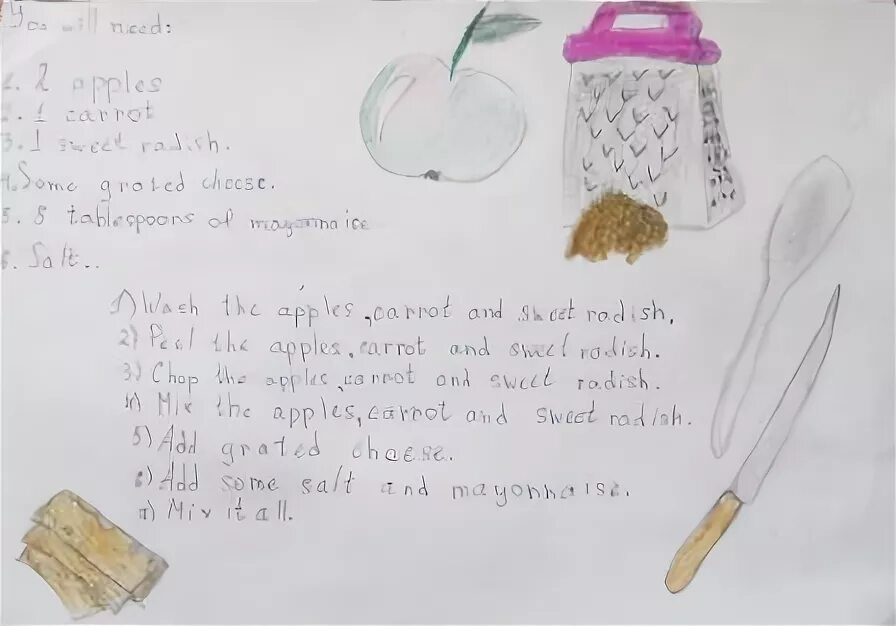 You will need:
1. 2 apples
2. 1 carrot
3. 1 sweet radish.
4. Some grated cheese.
5. 5 tablespoons of mayonnaice
6. Salt..
1) Wash the apples, carrot and sweet radish,
2) Peel the apples, carrot and sweet radish.
3) Chop the apples, carrot and sweet radish.
4) Mix the apples, carrot and sweet radish.
5) Add grated cheese.
6) Add some salt and mayonnaise.
7) Mix it all.